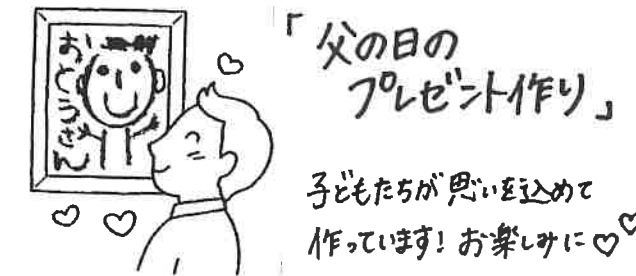 おとうさん
「父の日の
プレゼント作り」
子どもたちが思いを込めて
作っています！お楽しみに♡♡